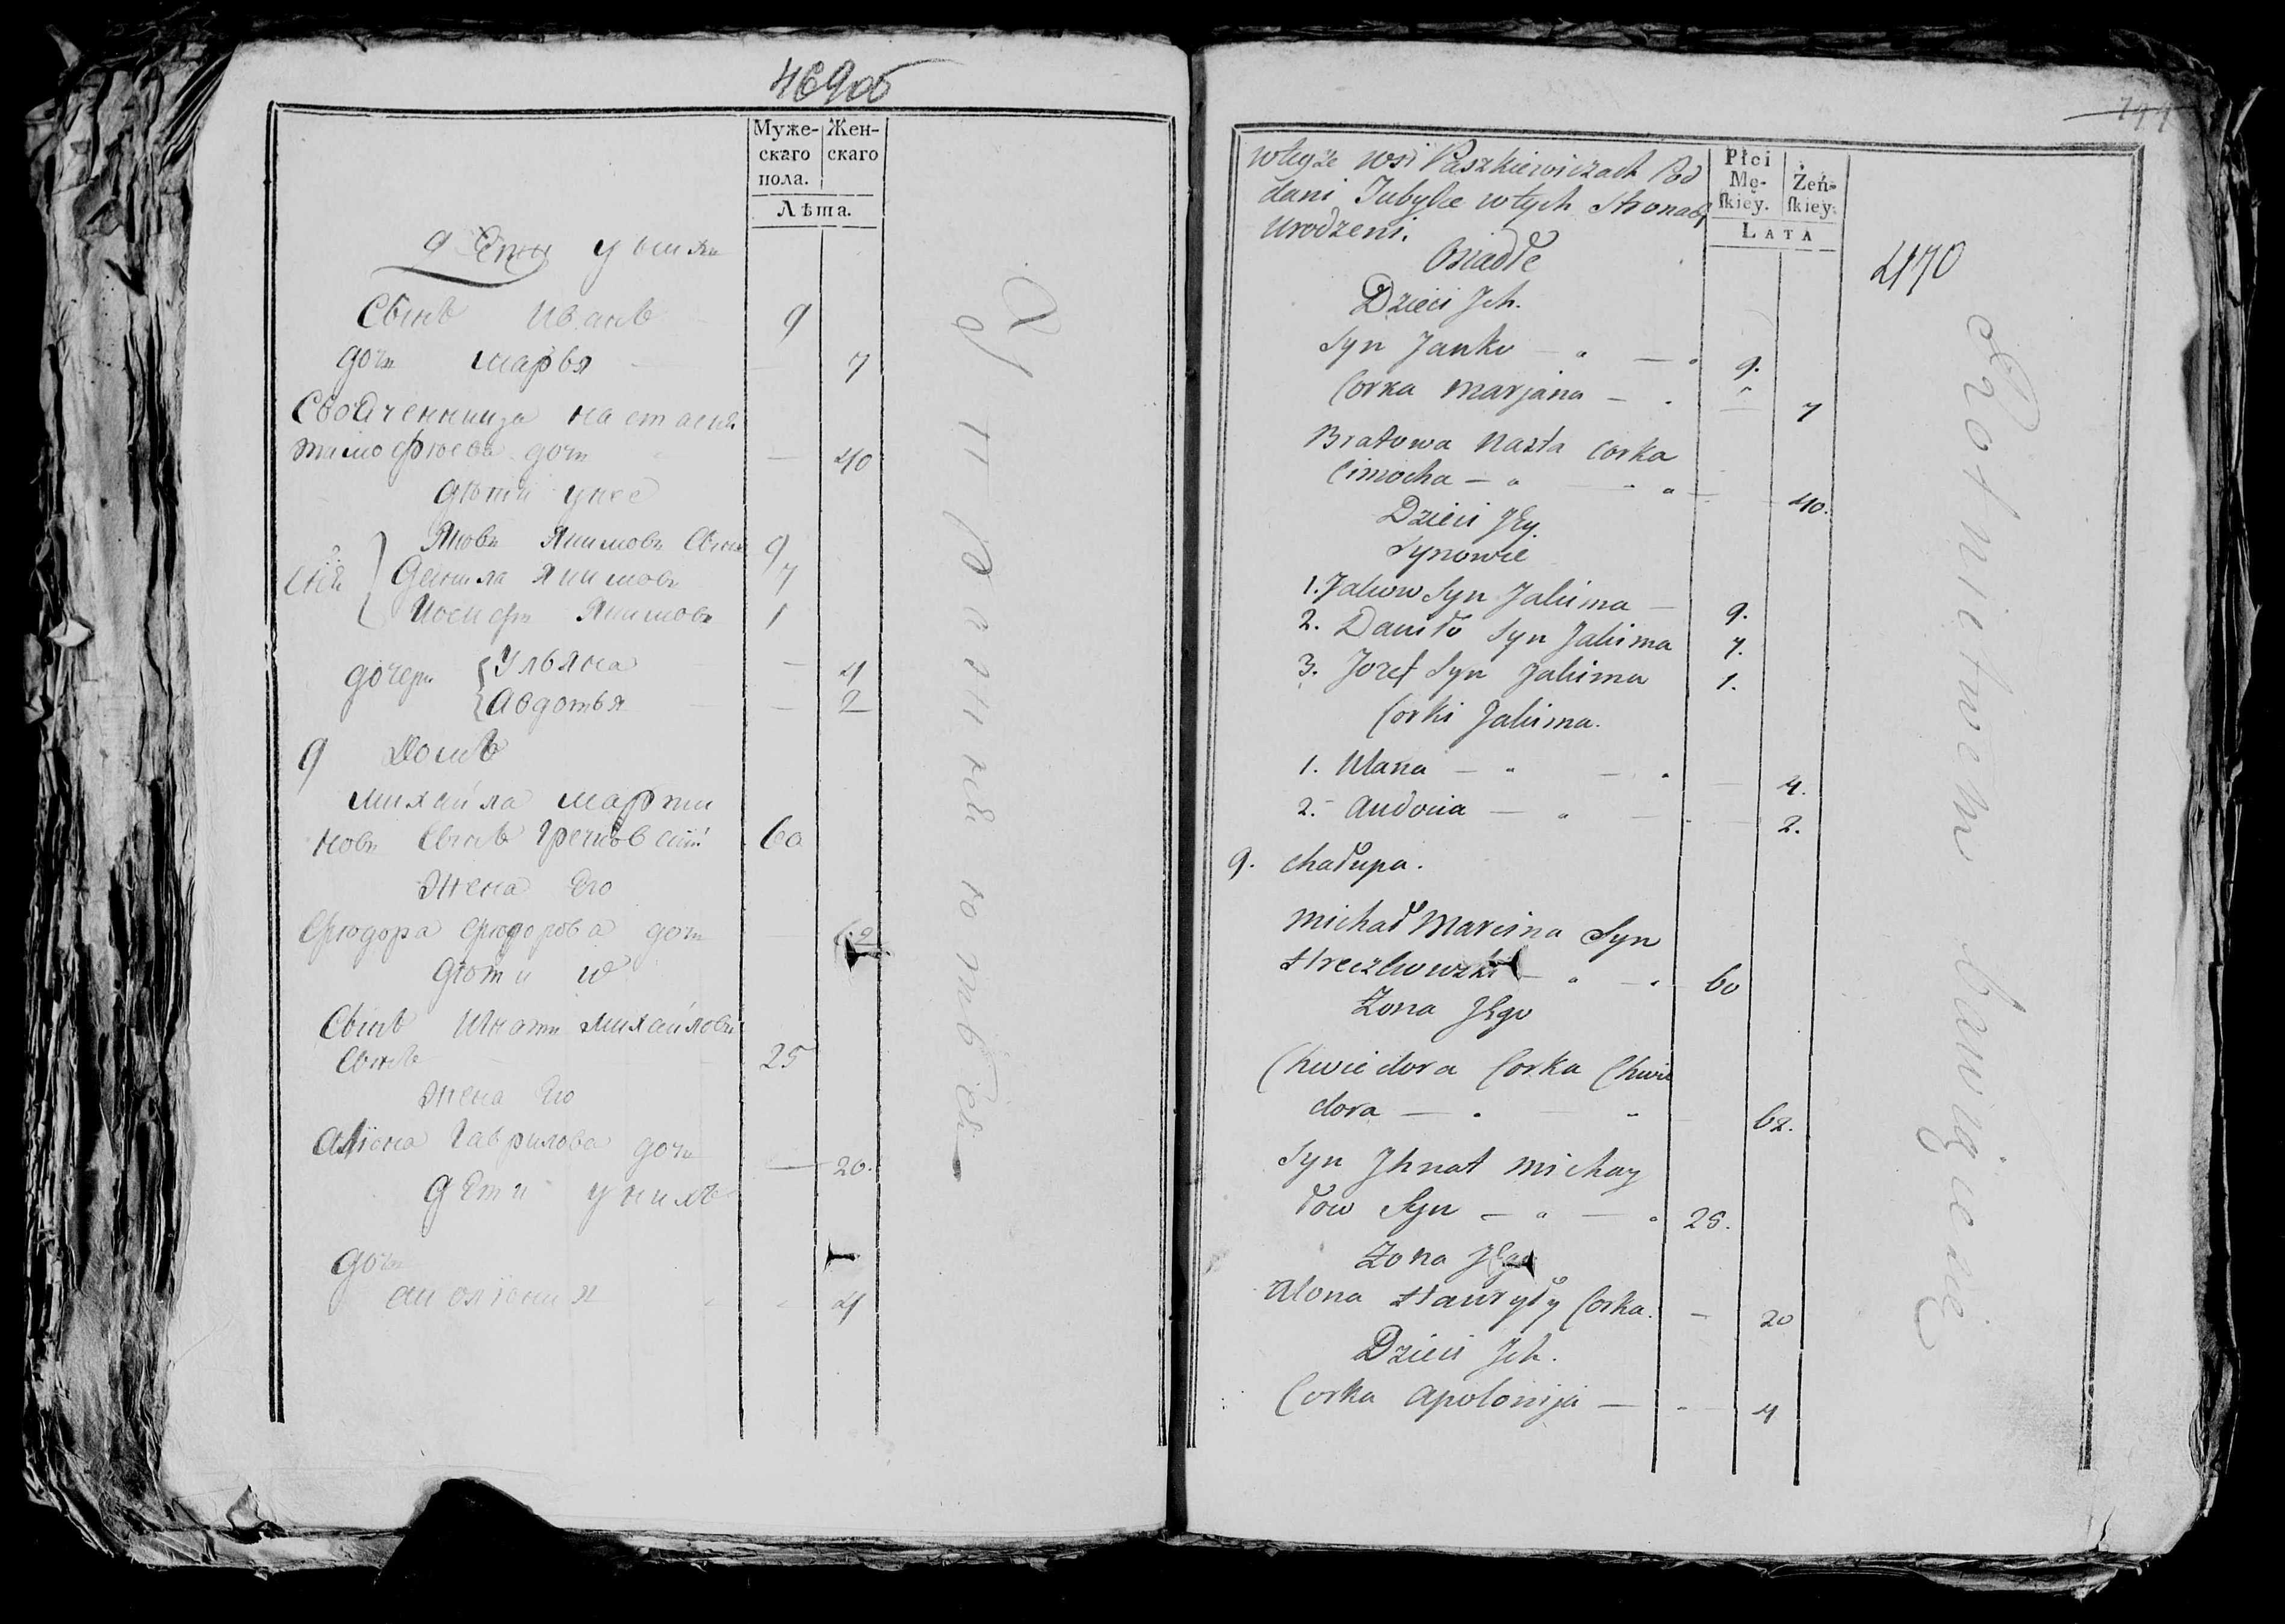 469об
Муже-
скаго
пола.
Жен-
скаго
Лѣта.
дети у нихъ
Сынъ Иванъ 9
дочь марья 7
Своячennица настасья
тимофѣева дочь — 40
дѣти у нее
Яковъ Якимовъ Сынъ 9
Данила Якимовъ 7
Иосифъ Якимовъ 1
дочери Ульяна — 4
Авдотья — 2
9 Домъ
михайла марти
новъ Сынъ 60
Жена Его
Ѳюдора Ѳюдорова дочь 62
дѣти
Сынъ Игнатъ Михайловъ
Сынъ 25
Жена Его
Алiона Гаврилова дочь — 20.
дети у нихъ
дочь
аполiония 4
wteyże wsi Paszkiewiczach Pod
dani Tubylce wtych Stronach
urodzeni.
Płci
Mę-
ſkiey.
Żeń-
ſkiey.
LATA
470
Osiadłe
Dzieci Jch.
Syn Janko — 9.
Corka Marjana — 7
Bratowa Nasta Corka
Cimocha — 40.
Dzieci Jey.
Synowie
1. Jakow Syn Jakima — 9.
2. Daniło Syn Jakima 7.
3. Jozef Syn Jakima 1.
Corki Jakima.
1. Ulana — 4.
2. Audocia — 2.
9. Chałupa.
Michał Marcina Syn
Hreczkowski — 60
Żona Jego
Chwiedora Corka Chwie
dora — 62.
Syn Jhnat Michay
łow Syn — 25.
Żona Jego
Alona Hawryły Corka. — 20
Dzieci Jch.
Corka Apolonija — 4